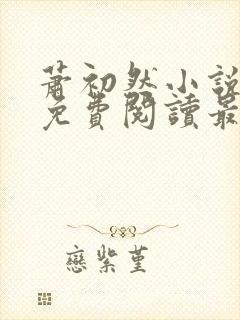 蕭初然小說
免費閱讀最
戀紫堇